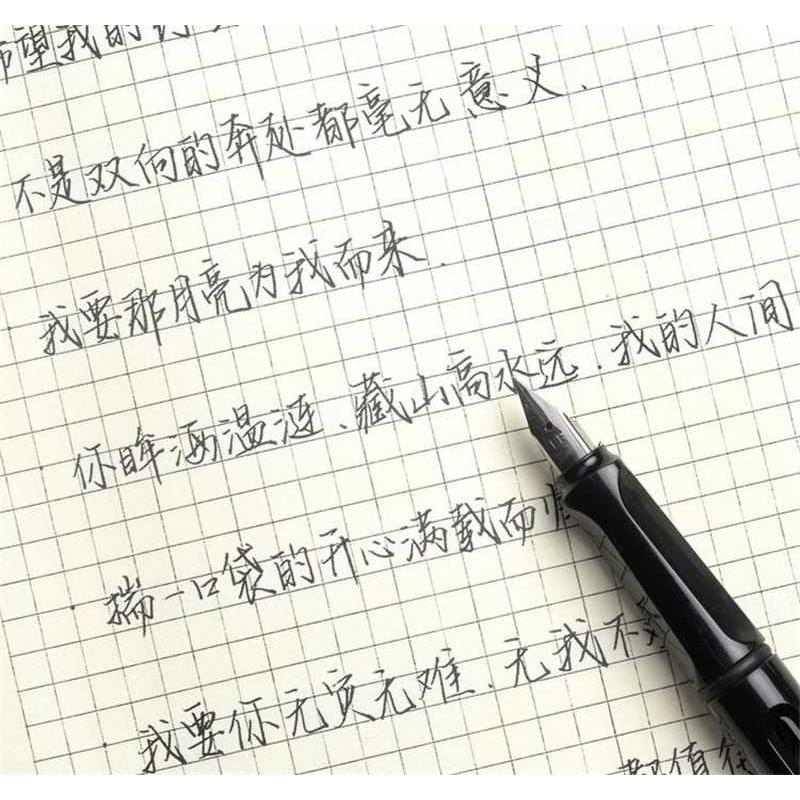 望我的
不是双向的奔赴都毫无意义.
我要那月亮为我而来.
你眸洒温涟、藏山高水远.我的人间
揣一口袋的开心满载而归
我要你无灾无难、无我不
都值